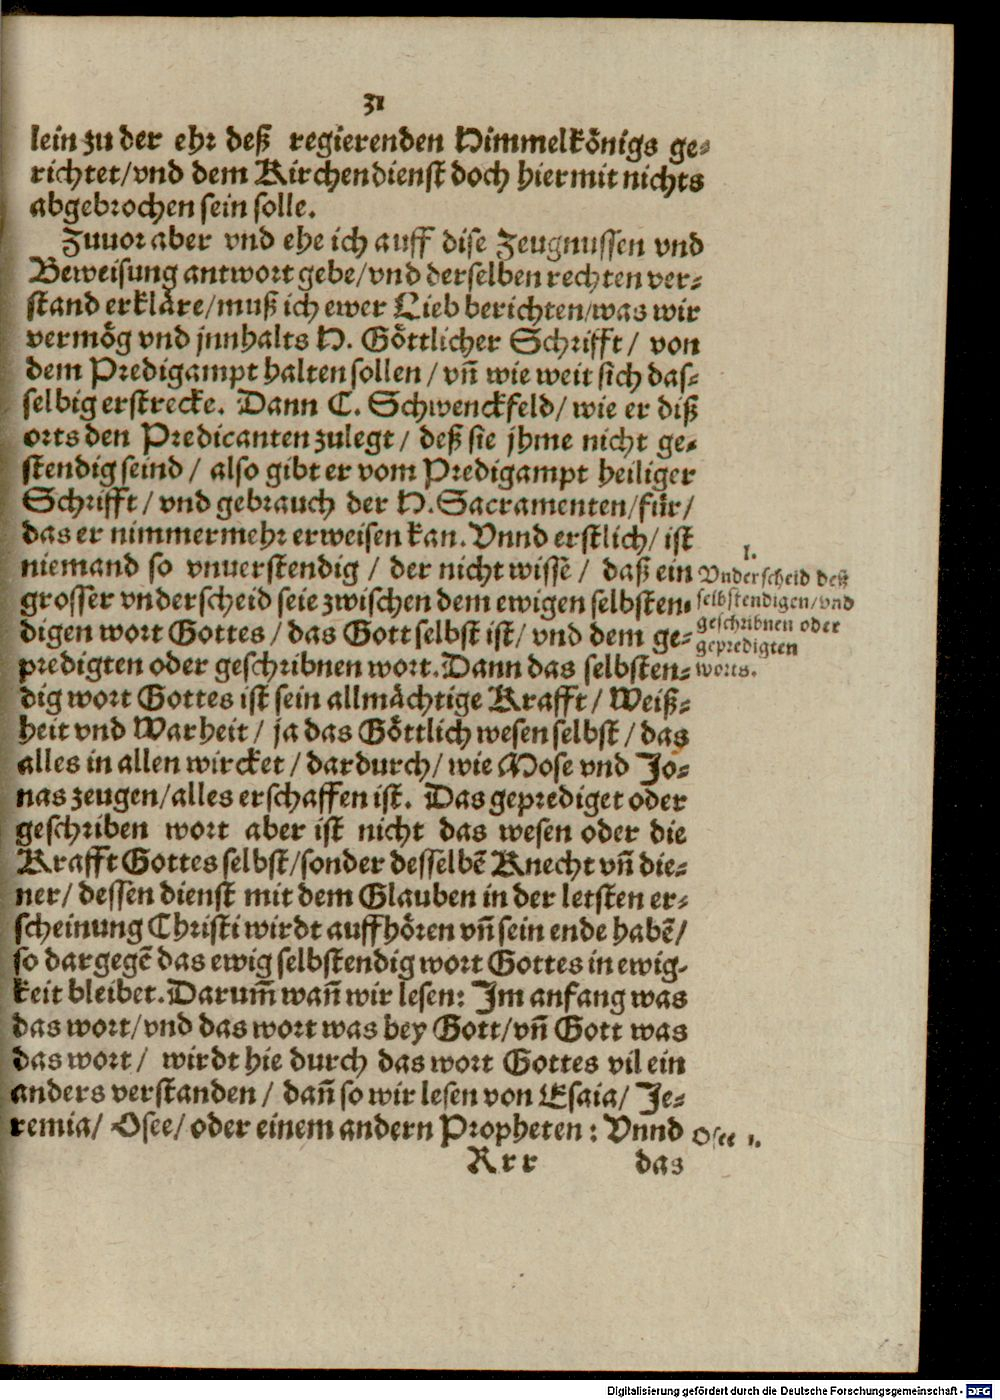 31
lein zu der ehr deß regierenden Himmelkönigs ge-
richtet/vnd dem Kirchendienst doch hiermit nichts
abgebrochen sein solle.
Zuuor aber vnd ehe ich auff dise Zeugnussen vnd
Beweisung antwort gebe/vnd derselben rechten ver-
stand erkläre/muß ich ewer Lieb berichten/was wir
vermög vnd jnnhalts H. Göttlicher Schrifft/ von
dem Predigampt halten sollen/ vñ wie weit sich das-
selbig erstrecke. Dann C. Schwenckfeld/ wie er diß
orts den Predicanten zulegt/ deß sie jhme nicht ge-
stendig seind/ also gibt er vom Predigampt heiliger
Schrifft/ vnd gebrauch der H. Sacramenten/für/
das er nimmermehr erweisen kan. Vnnd erstlich/ ist
niemand so vnuerstendig/ der nicht wissẽ/ daß ein
grosser vnderscheid seie zwischen dem ewigen selbsten-
digen wort Gottes/ das Gott selbst ist/ vnd dem ge-
predigten oder geschribnen wort. Dann das selbsten-
dig wort Gottes ist sein allmächtige Krafft/ Weiß-
heit vnd Warheit/ ja das Göttlich wesen selbst/ das
alles in allen wircket/ dardurch/ wie Mose vnd Jo-
nas zeugen/alles erschaffen ist. Das geprediget oder
geschriben wort aber ist nicht das wesen oder die
Krafft Gottes selbst/sonder desselbẽ Knecht vñ die-
ner/ dessen dienst mit dem Glauben in der letsten er-
scheinung Christi wirdt auffhören vñ sein ende habẽ/
so dargegẽ das ewig selbstendig wort Gottes in ewig-
keit bleibet. Darum̃ wañ wir lesen: Im anfang was
das wort/vnd das wort was bey Gott/vñ Gott was
das wort/ wirdt hie durch das wort Gottes vil ein
anders verstanden/ dañ so wir lesen von Esaia/ Je-
remia/ Osee/ oder einem andern Propheten: Vnnd
Rrr das
I.
Vnderscheid deß
selbstendigen/vnd
geschribnen oder
gepredigten
worts.
Osee 1.
Digitalisierung gefördert durch die Deutsche Forschungsgemeinschaft - DFG